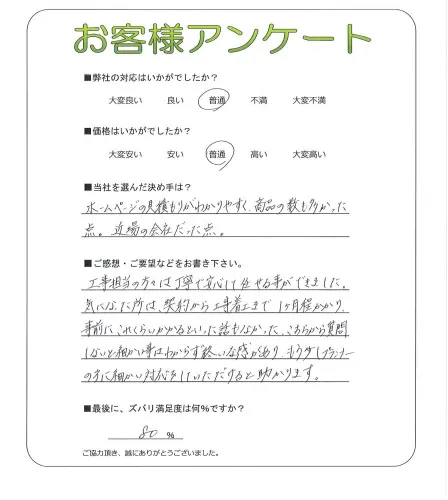 お客様アンケート
■弊社の対応はいかがでしたか?
大変良い 良い 普通 不満 大変不満
■価格はいかがでしたか?
大変安い 安い 普通 高い 大変高い
■当社を選んだ決め手は?
ホームページの見積もりがわかりやすく、商品の数も多かった
点。近場の会社だった点。
■ご感想・ご要望などをお書き下さい。
工事担当の方々は丁寧で安心して任せる事ができました。
気になった所は、契約から工事着工まで1ヶ月程かかり、
事前にこれくらいかかるといった話もなかった。こちらから質問
しないと細かい事はわからず終いな感があり、もう少しプランナー
の方に細かい対応をしていただけると助かります。
■最後に、ズバリ満足度は何%ですか?
80 %
ご協力頂き、誠にありがとうございました。